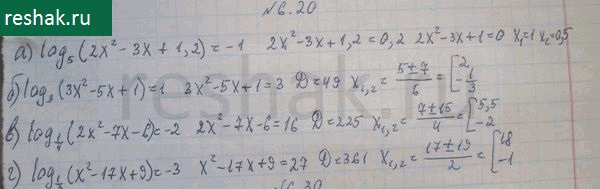 reshak.ru
№6.20
а) log₅(2x²-3x+1,2)=-1 2x²-3x+1,2=0,2 2x²-3x+1=0 x₁=1 x₂=0,5
б) log₃(3x²-5x+1)=1 3x²-5x+1=3 D=49 x₁,₂=(5±7)/6=[2, -1/3
в) log_{1/4}(2x²-7x-6)=-2 2x²-7x-6=16 D=225 x₁,₂=(7±15)/4=[5,5 -2
г) log_{1/3}(x²-17x+9)=-3 x²-17x+9=27 D=361 x₁,₂=(17±19)/2=[18 -1
6.30
reshak.ru